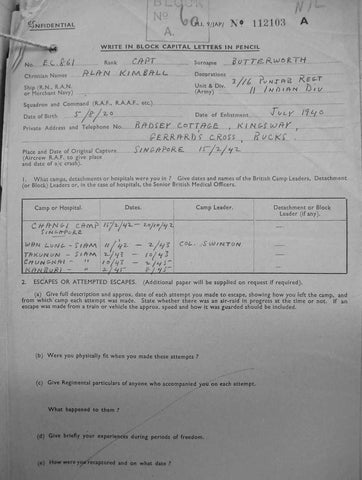 CONFIDENTIAL
BLOCK
No 6G
A.
M.I. 9/JAP/ No 112103 A
NIL
WRITE IN BLOCK CAPITAL LETTERS IN PENCIL
No. EC 861 Rank CAPT Surname BUTTERWORTH
Christian Names ALAN KIMBALL Decorations
Ship (R.N., R.A.N. or Merchant Navy) Unit & Div. (Army) 2/16 PUNJAB REGT 11 INDIAN DIV
Squadron and Command (R.A.F., R.A.A.F., etc.)
Date of Birth 5/8/20 Date of Enlistment JULY 1940
Private Address and Telephone No. RADSEY COTTAGE, KINGSWAY,
GERRARDS CROSS, BUCKS.
Place and Date of Original Capture SINGAPORE 15/2/42
(Aircrew R.A.F. to give place
and date of a/c crash).
1. What camps, detachments or hospitals were you in ? Give dates and names of the British Camp Leaders, Detachment
(or Block) Leaders or, in the case of hospitals, the Senior British Medical Officers.
Camp or Hospital. Dates. Camp Leader. Detachment or Block Leader (if any).
CHANGI CAMP 15/2/42 - 20/10/42 —
SINGAPORE
WAN LUNG - SIAM 11/42 - 2/43 COL. SWINTON —
TAKUNUN - SIAM 2/43 - 10/43 —
CHUNGKAI - " 10/43 - 2/45 —
KANBURI - " 2/45 - 8/45 —
2. ESCAPES OR ATTEMPTED ESCAPES. (Additional paper will be supplied on request if required).
(a) Give full description and approx. date of each attempt you made to escape, showing how you left the camp, and
from which camp each attempt was made. State whether there was an air-raid in progress at the time or not. If an
escape was made from a train or vehicle the approx. speed and how it was guarded should be included.
(b) Were you physically fit when you made these attempts ?
(c) Give Regimental particulars of anyone who accompanied you on each attempt.
What happened to them ?
(d) Give briefly your experiences during periods of freedom.
(e) How were you recaptured and on what date ?